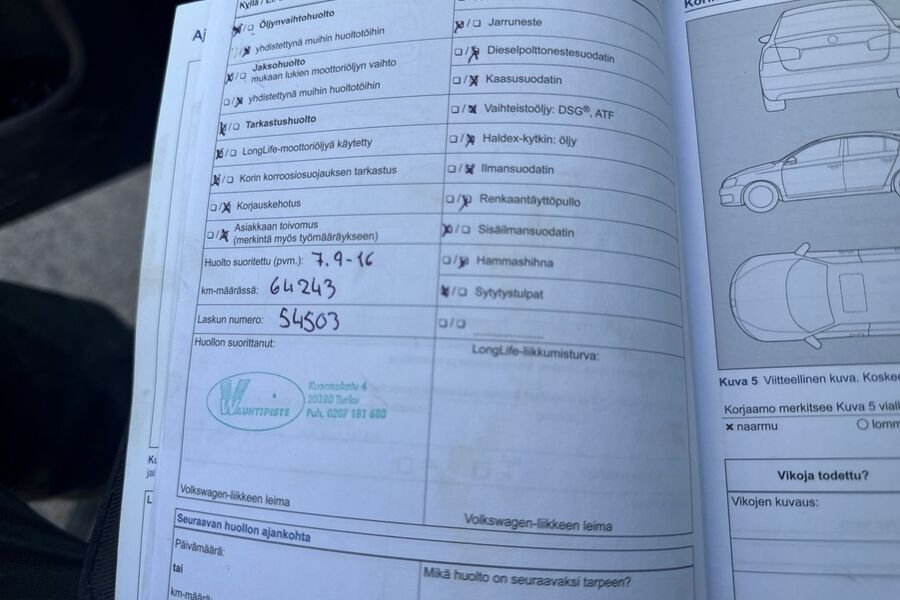 Kyllä / Ei
Öljynvaihtohuolto
yhdistettynä muihin huoltotöihin
Jaksohuolto
mukaan lukien moottoriöljyn vaihto
yhdistettynä muihin huoltotöihin
Tarkastushuolto
LongLife-moottoriöljyä käytetty
Korin korroosiosuojauksen tarkastus
Korjauskehotus
Asiakkaan toivomus
(merkintä myös työmääräykseen)
Huolto suoritettu (pvm.): 7.9-16
km-määrässä: 64243
Laskun numero: 54503
Huollon suorittanut:
VAUHTIPISTE
Kuormakatu 4
20380 Turku
Puh. 0207 181 680
Volkswagen-liikkeen leima
Jarruneste
Dieselpolttonestesuodatin
Kaasusuodatin
Vaihteistoöljy: DSG®, ATF
Haldex-kytkin: öljy
Ilmansuodatin
Renkaantäyttöpullo
Sisäilmansuodatin
Hammashihna
Sytytystulpat
LongLife-liikkumisturva:
Volkswagen-liikkeen leima
Seuraavan huollon ajankohta
Päivämäärä:
tai
km-määrä:
Mikä huolto on seuraavaksi tarpeen?
Kuva 5 Viitteellinen kuva.
Korjaamo merkitsee Kuva 5
naarmu
Vikoja todettu?
Vikojen kuvaus: